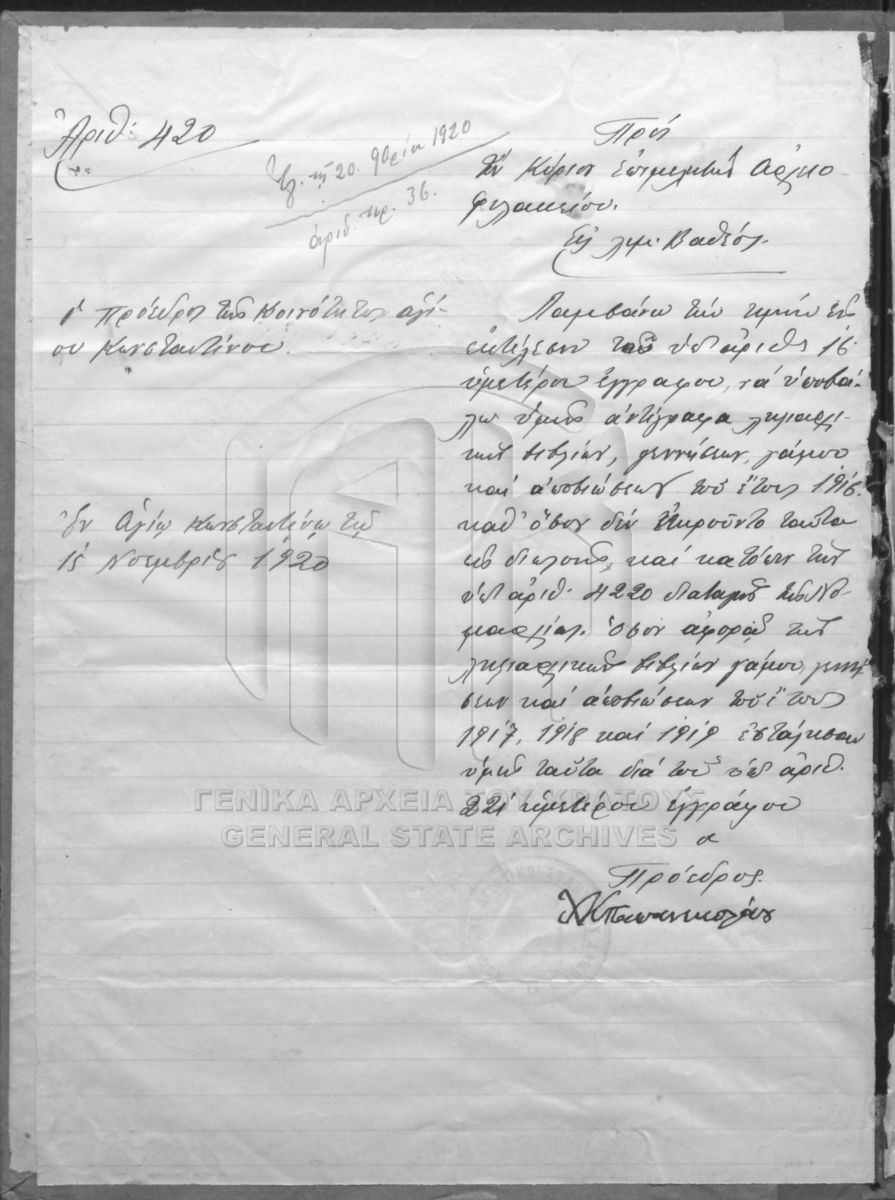 Ἀριθ: 420
Ἐλ. τῇ 20. 9βρίου 1920
ἀριθ. πρ. 36.
Πρός
τόν Κύριον ἐπιμελητήν Ἀρχειο-
φυλακείου.
Εἰς Λιμ: Βαθέος.
ὁ Πρόεδρος τῆς Κοινότητος Ἁγί-
ου Κωνσταντίνου.
Ἐν Ἁγίῳ Κωνσταντίνῳ τῇ
15 Νοεμβρίου 1920
Λαμβάνω τήν τιμήν εἰς
ἐκτέλεσιν τοῦ ὑπ' ἀριθ. 16
ὑμετέρου ἐγγράφου, νά ὑποβά-
λω ὑμῖν ἀντίγραφα ληξιαρχι-
κῶν βιβλίων, γεννήσεων, γάμου
καί ἀποβιώσεων τοῦ ἔτους 1916.
καθ' ὅσον δέν ἐτηροῦντο ταῦτα
εἰς διπλοῦν, καί κατόπιν τῆς
ὑπ' ἀριθ. 4220 διαταγῆς τῆς Νο-
μαρχίας. Ὅσον ἀφορᾷ τῶν
ληξιαρχικῶν βιβλίων γάμου, γεννή-
σεων καί ἀποβιώσεων τοῦ ἔτους
1917, 1918 καί 1919 ἐστάλησαν
ὑμῖν ταῦτα διά τοῦ ὑπ' ἀριθ.
221 ἡμετέρου ἐγγράφου
ὁ
Πρόεδρος
Χ Κ Παπανικολάου
ΓΕΝΙΚΑ ΑΡΧΕΙΑ ΤΟΥ ΚΡΑΤΟΥΣ
GENERAL STATE ARCHIVES